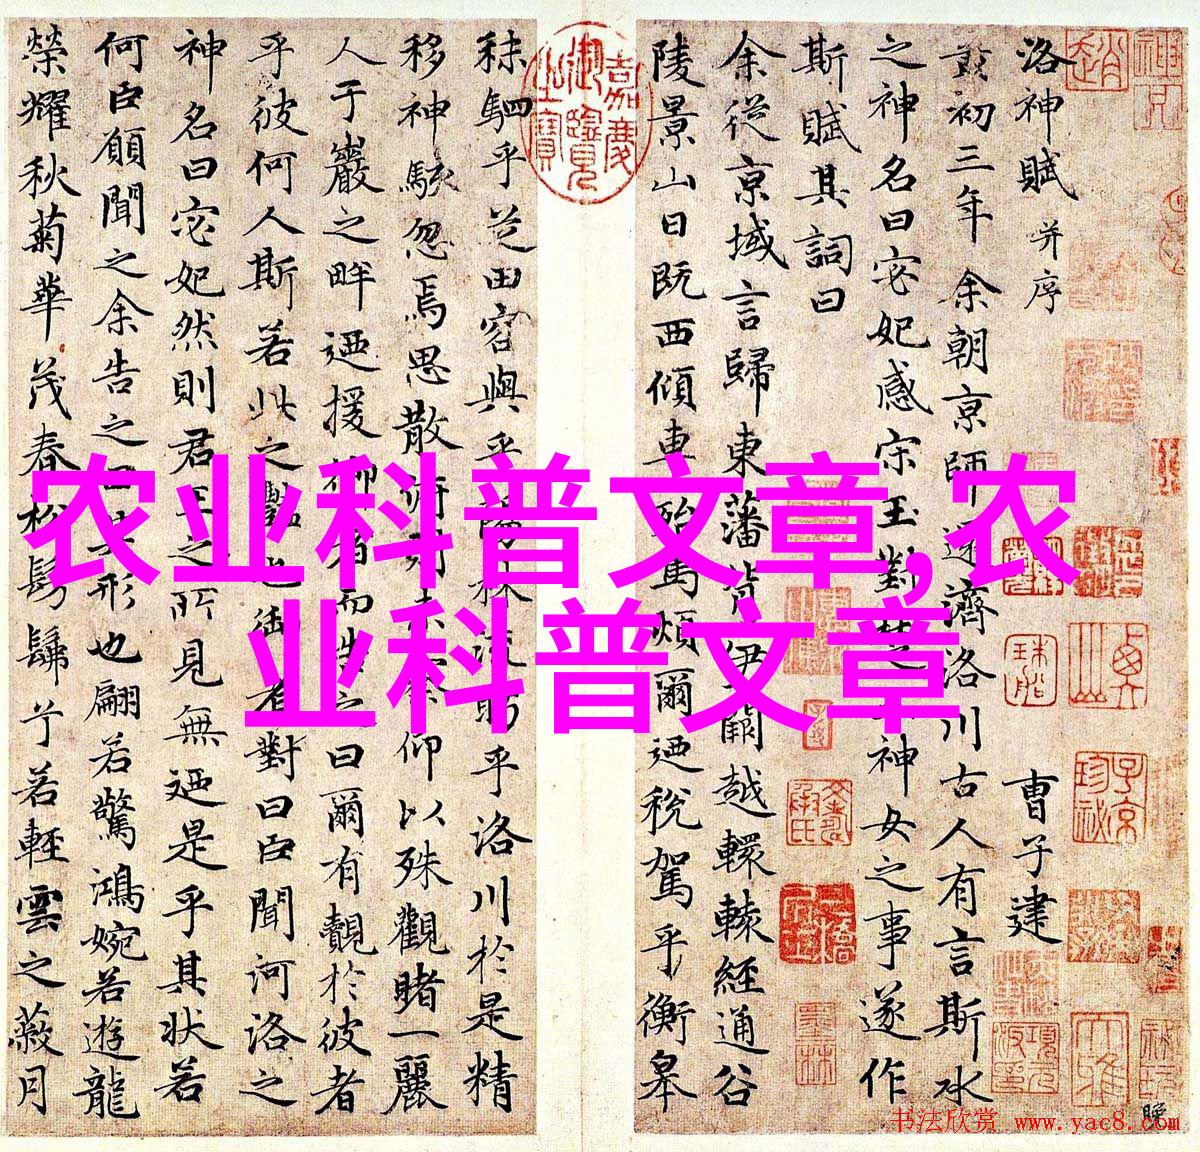 洛神賦 并序 曹子建
黃初三年余朝京師還濟洛川古人有言斯水
之神名曰宓妃感宋玉對神女之事遂作
斯賦其詞曰
余從京域言歸東藩背伊闕越轘轅經通谷
陵景山日既西傾車殆馬煩爾迺稅駕乎衡皋
嘉慶御覽之寶
秣駟乎芝田容與乎陽林流眄乎洛川於是精
移神駭忽焉思散俯則未察仰以殊觀睹一麗
人于巖之畔迺援御者而告之曰爾有覿於彼者
乎彼何人斯若此之豔也御者對曰臣聞河洛之
神名曰宓妃然則君王之所見無迺是乎其狀若
何臣願聞之余告之曰其形也翩若驚鴻婉若遊龍
榮耀秋菊華茂春松髣髴兮若輕雲之蔽月
农业科普文章,农
业科普文章
书法欣赏 www.yac8.com